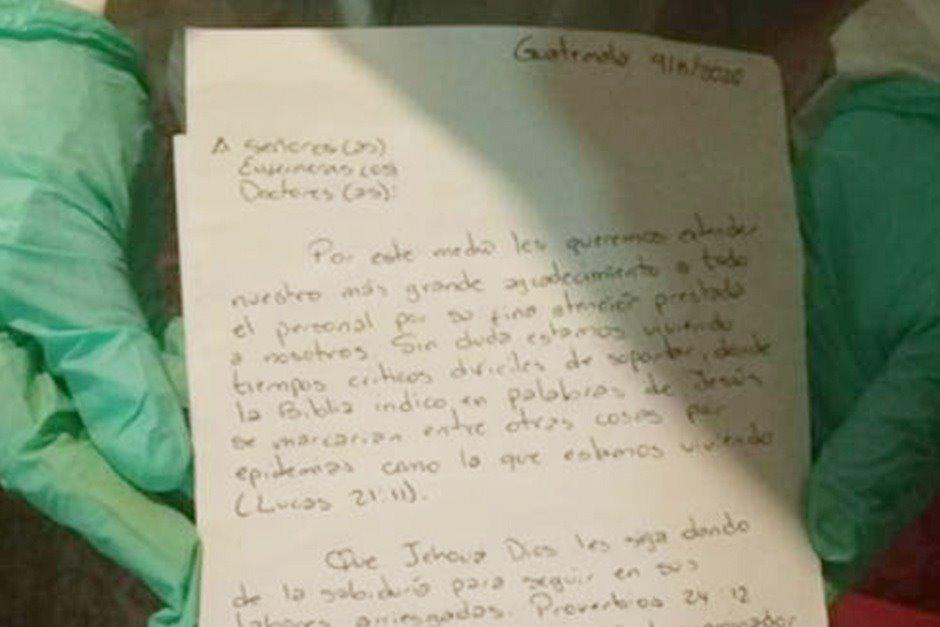 Guatemala
A Señores(as)
Enfermeras(os)
Doctores(as):
Por este medio les queremos extender
nuestro más grande agradecimiento a todo
el personal por su fina atención prestada
a nosotros. Sin duda estamos viviendo
tiempos criticos dificiles de soportar, donde
la Biblia indico, en palabras de Jesús
se marcarian entre otras cosas por
epidemias como la que estamos viviendo
(Lucas 21:11).
Que Jehova Dios les siga dando
de la sabiduría para seguir en sus
labores arriesgadas. Proverbios 24:12